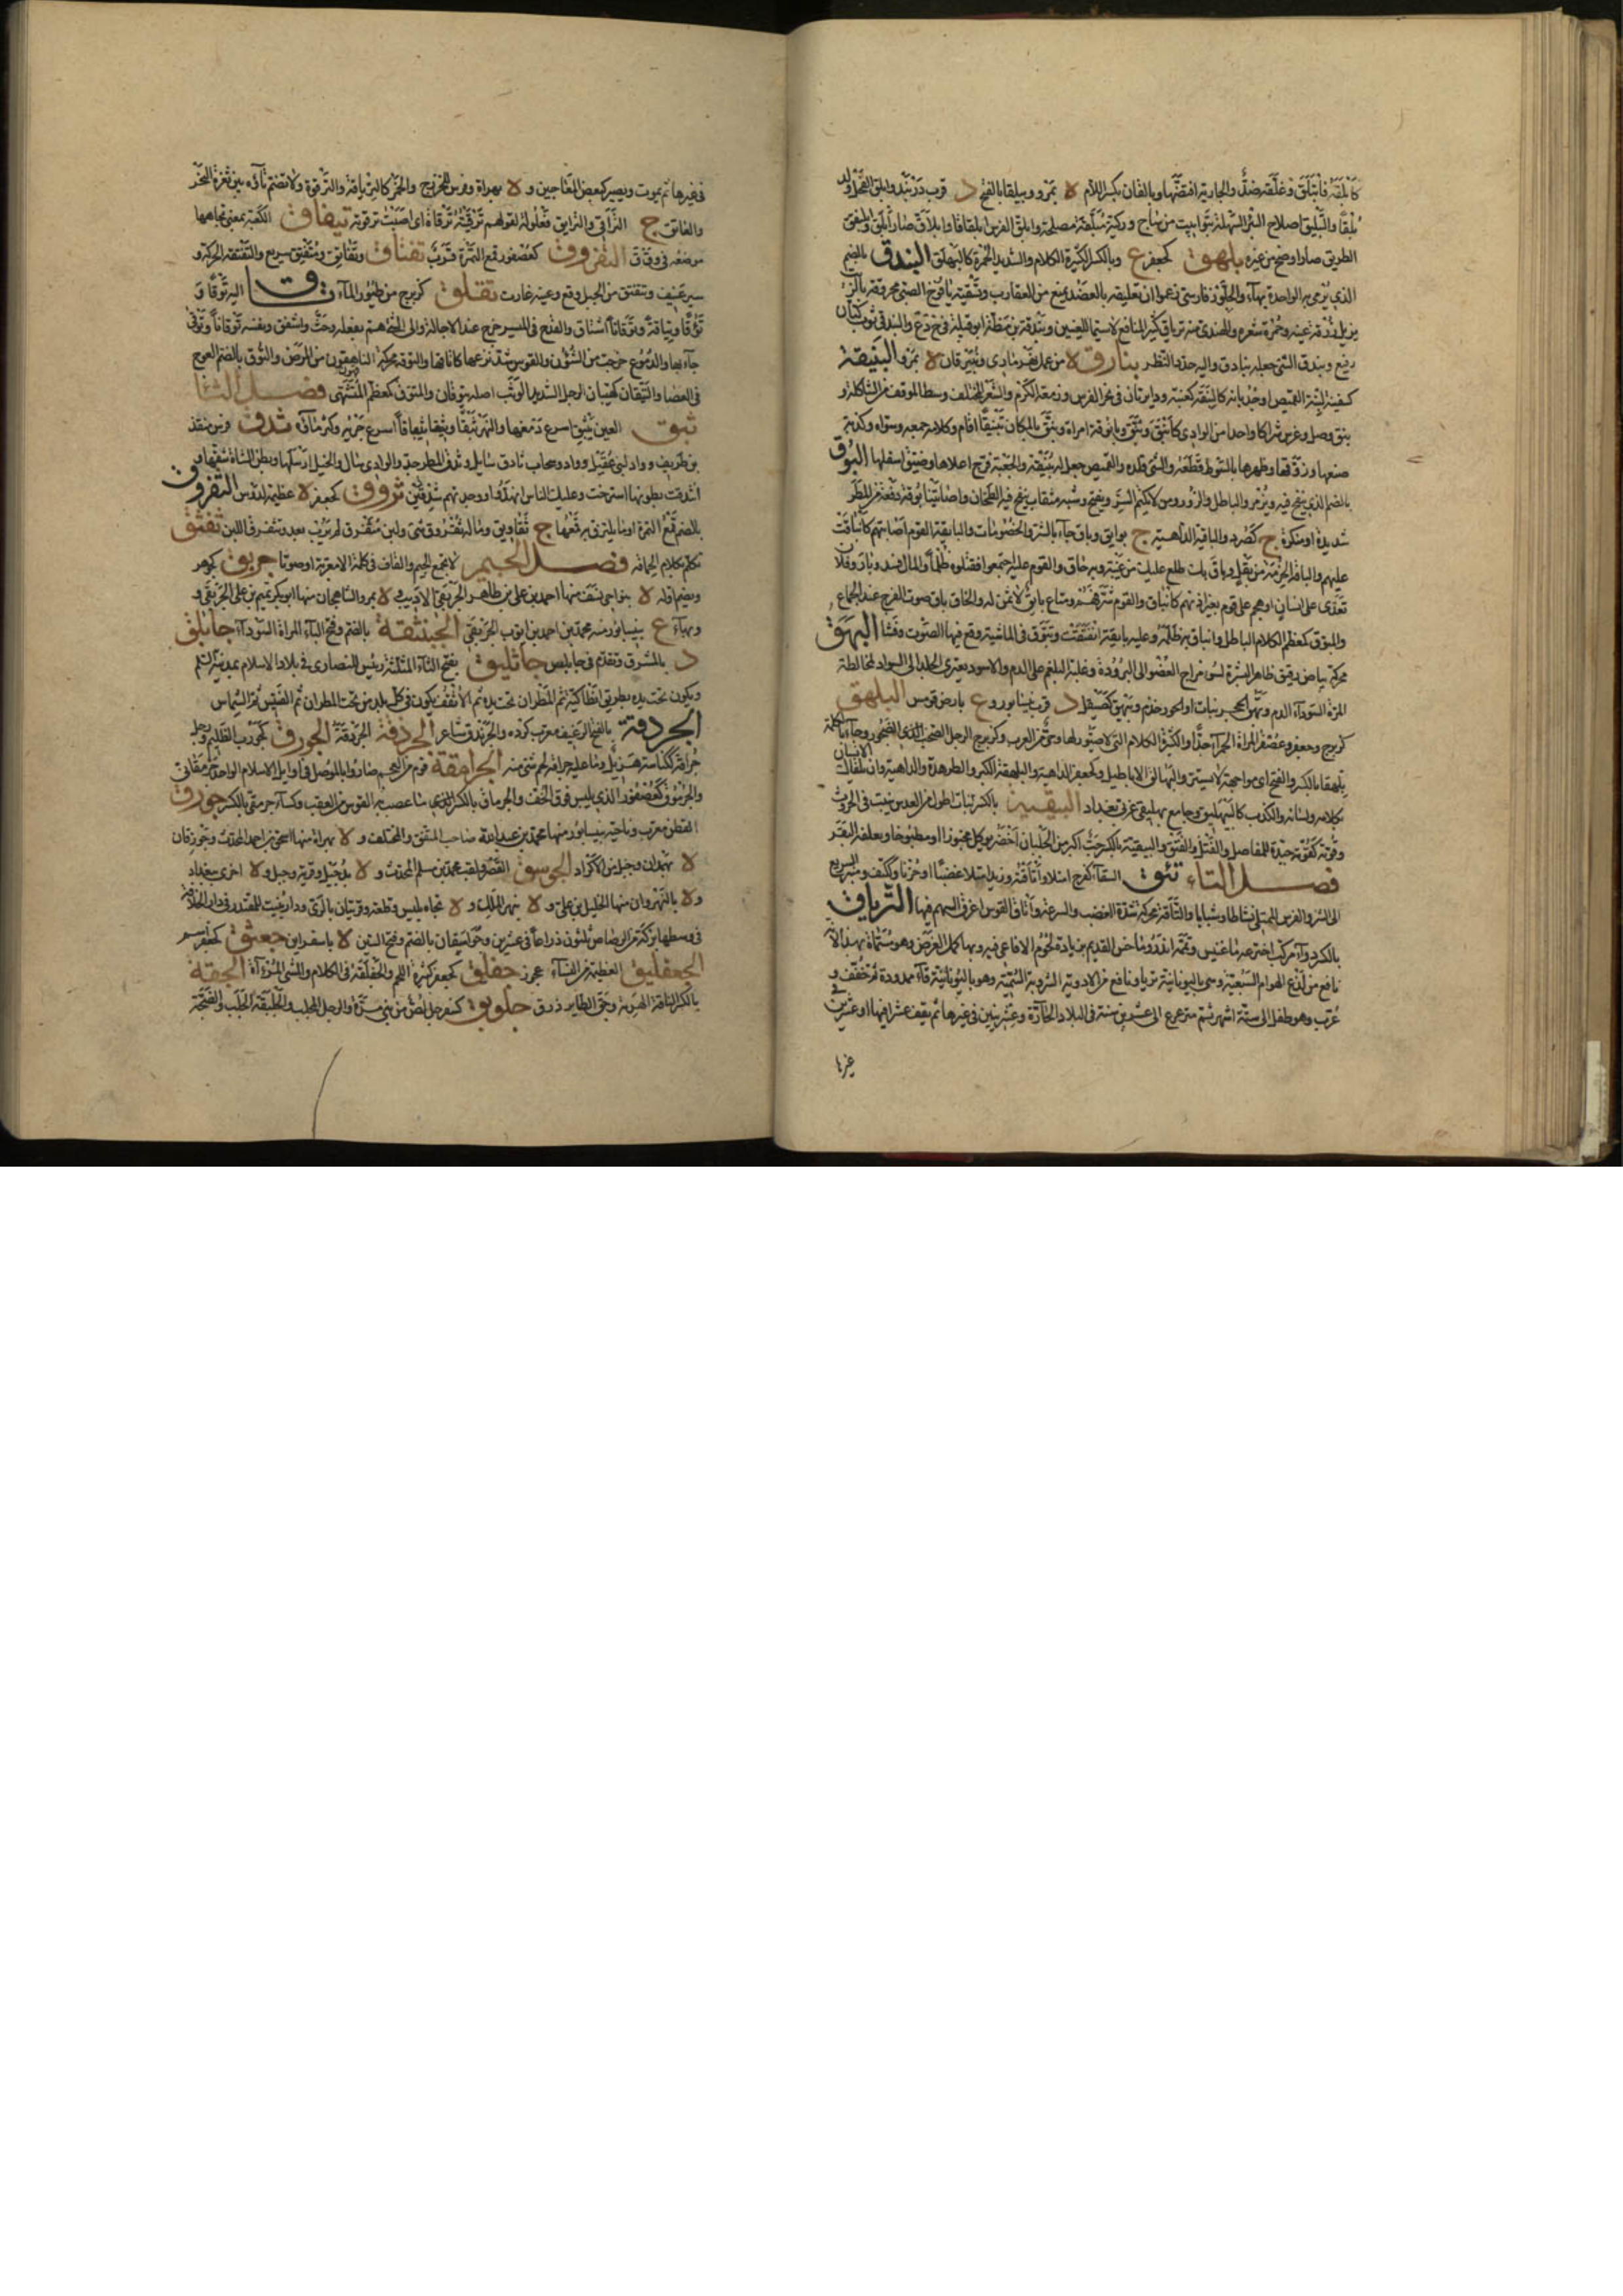 كابلقه فانبلق وغلقه ضد والجارية افتضها وبالقان بكسر اللام ة بمرو وبيلقان بالفتح د قرب دربند وابلق الفحل ولد
بلقا والتبليق اصلاح البئر السهلة بتوابيت من ساج وركية مبلقة مصلحة وابلق الفرس ابلقاقا وابلاق صار ابلق وابلنقق
الطريق صار اوضح من غيره بلهق كجعفر ع وبالكسر الكثيرة الكلام والشديد الحمرة كالبهلق البندق بالضم
الذي يرمى به الواحدة بهاء والجلوز فارسي زعموا ان تعليقه بالعضد يمنع من العقارب وتسقية يافوخ الصبي بمحروقه بالزيت
يزيل زرقة عينه وحمرة شعره والهندي منه ترياق كثير المنافع لا سيما للعينين وبندقة بن مظة ابو قبيلة والبندقي ثوب كتان
رفيع وبندق الشي جعله بنادق واليه حدد النظر بنارق ة من عمل بغداد ة بمرو البنيقة
كسفينة لبنة القميص او جربانه كالبنقة كعنبة ودايرتان في نحر الفرس وزمعة الكرم والشعر المختلف وسط الموقف من الشاكلة و
بنق وصل وغرس شراكا واحدا من الوادي كابنق وبنق وبانوقة امراة وبنق بالمكان تبنيقا اقام وكلامه جمعه وسواه وكذبة
صنعها وزوقها وظهره بالسوط قطعه والشي قلده والقميص جعل له بنيقة والجعبة فرج اعلاها وضيق اسفلها البوق
بالضم الذي ينفخ فيه ويزمر والباطل والزور ومن لا يكتم السر ويفتح وشبه منقاب ينفخ فيه الطحان واصابتنا بوقة دفعة من المطر
شديدة او منكرة ج كصرد والباقية الداهية ج بوايق وباق جاء بالشر والخصومات والبايقة القوم اصابتهم كانباقت
عليهم والباقة الحزمة من بقل وباق بك طلع عليك من غيبة وبه حاق والقوم عليه اجتمعوا فقتلوه ظلما والمال فسد وبار وفلان
تعدى على انسان او هجم على قوم بغير اذنهم كانباق والقوم سرقهم ومتاع بايق لا ثمن له والخاق باق صوت الفرج عند الجماع
والمبوق كمعظم الكلام الباطل وانباق به ظلمه وعليه بايقة انفتقت وتبوق في الماشية وقع فيها الموت وفشا البهق
محركة بياض رقيق ظاهر البشرة لسوء مزاج العضو الى البرودة وغلبة البلغم على الدم والاسود يغير الجلد الى السواد لمخالطة
المرة السوداء الدم وبهق الحجر نبات او الجوزجندم وبيهق كصيقل د قرب نيسابور وع بارض قومس البلهق
كزبرج وجعفر وعصفر المراة الحمراء جدا والكثيرة الكلام التي لا صيور لها وحي من العرب وكزبرج الرجل الضخب الضجور وجاء بالكلمة
بلهقا بالكسر والفتح اي مواجهة لا يستتر والبهالق الاباطيل وكجعفر الداهية والبلهقة الكبر والطرهذة والداهية وان تلقاك
بكلامه ولسانه والكذب كالتبهلق وجامع بهليقى غربي بغداد البيقية بالكسر نبات اطول من العدس ينبت في الحروث
وقوته كقوته جيدة للمفاصل والفتل والفتق والبيقية بالكسر حب اكبر من الجلبان اخضر يوكل مخبوزا او مطبوخا وتعلفه البقر
فصل التاء تئق السقاء كفرح امتلا واتاقته وزيد امتلا غضبا او حزنا وككتف ومنبر السريع
الى الشر والفرس الممتلي نشاطا وشبابا والتاقة محركة شدة الغضب والسرعة واتاق القوس اغرق السهم فيها الترياق
بالكسر دواء مركب اخترعه ماغنيس وتممه اندروماخس القديم بزيادة لحوم الافاعي فيه وبها كمل الغرض وهو مسماه بهذا لانه
نافع من لدغ الهوام السبعية وهي باليونانية تريا ونافع من الادوية المشروبة السمية وهو باليونانية قاا ممدودة ثم خفف و
عرب وهو طفل الى ستة اشهر ثم مترعرع الى عشر سنين في البلاد الحارة وعشرين في غيرها ثم يقف عشرا فيها او عشرين
غيرها
في غيرها ثم يموت ويصير كبعض المعاجين و ة بهراة وفرس للخزرج والخمر كالترياقة والترقوة ولا تضم تاؤه بين ثغرة النحر
والعاتق ج التراقي والترايق فعلوة لقولهم ترقيته ترقاة اي اصبت ترقوته تيفاق الكعبة بمعنى تجاهها
موضعه في وفق التفروق كعصفور قمع التمرة قرب تقتاق وتقاتق ومتقتق سريع والتقتقة الحركة و
سير عنيف وتتقتق من الجبل وقع وعينه غارت تقلق كزبرج من طيور الماء تاق اليه توقا و
تؤوقا وتياقة وتوقانا اشتاق والقدح في الميسر خرج عند الاجالة والى الشي هم بفعله وحث واشفق وبنفسه توقانا وتوقا
جاء بها والدموع خرجت من الشؤون والقوس شد نزعها كاتاقها والتوقة محركة الناهضون من المرض والتوق بالضم العوج
في العصا والتيقان كهيبان الرجل الشديد الوثب اصله تيوقان والمتوق كمعظم المشتهى فصل الثاء
ثبق العين تثبق اسرع دمعها والنهر ثبقا وتثباقا اسرع جريه وكثر ماؤه ثدق فرس منقذ
بن طريف وواد لبني عقيل وواد وسحاب ثادق سايل وثدق المطر جد والوادي سال والخيل ارسلها وبطن الشاة شقها و
اثدقت بطونها استرخت وعليك الناس انهدوا ووجدتهم مثدقين ثروق كجعفر ة عظيمة لدوس الثفروق
بالضم قمع التمرة او ما يلتزق به قمعها ج ثفاريق وما له ثفروق شي ولبن مثفرق لم يرب بعد وتثفرق اللبن ثفثق
تكلم بكلام الحماقة فصل الجيم لا تجتمع الجيم والقاف في كلمة الا معربة او صوتا جربق كجوهر
وبضم اوله ة بنواحي نسف منها احمد بن علي بن طاهر الجوبقي الاديب و ة بمرو الشاهجان منها ابو بكر تميم بن علي الجوبقي و
وبهاء ع بنيسابور منه محمد بن احمد بن ايوب الجوبقي الجنبثقة بالضم وفتح الباء المراة السوداء جابلق
د بالمشرق وتقدم في جابلص جاثليق بفتح الثاء المثلثة رئيس للنصارى في بلاد الاسلام بمدينة السلم
ويكون تحت يد بطريق انطاكية ثم المطران تحت يده ثم الاسقف يكون في كل بلد من تحت المطران ثم القسيس ثم الشماس
الجردقة بالفتح الرغيف معرب كرده والجرندق شاعر الجرذقة الجردقة الجورق كجورب الظليم ورجل
جراقة ككناسة هزيل وما عليه جراقة لحم شي منه الجرامقة قوم من العجم صاروا بالموصل في اوايل الاسلام الواحد جرمقاني
والجرموق كعصفور الذي يلبس فوق الخف والجرماق بالكسر الذي ما عصب به القوس من العقب وكساء جرمقي بالكسر جوزق
القطن معرب وناحية بنيسابور منها محمد بن عبد الله صاحب المتفق والمختلف و ة بهراة منها اسحق بن احمد المحدث وجوزقان
ة بهمدان وجيل من الاكراد الجوسق القصر ولقب محمد بن مسلم المحدث و ة بدجيل وقرية وجبل و ة اخرى ببغداد
و ة بالنهروان منها الخليل بن علي و ة نهر الملك و ة تجاه بلبيس وقلعة وقريتان بالري ودار بنيت للمقتدر في دار الخلافة
في وسطها بركة من الرصاص ثلثون ذراعا في عشرين وجوسقان بالضم وفتح السين ة باسفراين جعثق كجعفر اسم
الجعفليق العظيمة من النساء جفلق عجوز كجعفر كثيرة اللحم والجفلقة في الكلام والمشي المراءاة الجقة
بالكسر الناقة الهرمة وجق الطاير ذرق جلوبق كسفرجل لص من بني سعد والرجل المجلب والجلبقة الجلبة والضجة